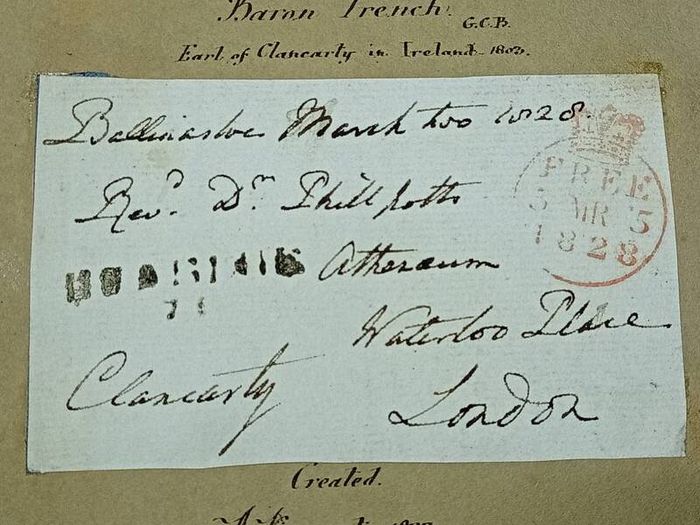 Baron Trench. G.C.B.
Earl of Clancarty in Ireland 1803.
Ballinasloe March two 1828.
Revd. Dr. Phillpotts
FREE
5 MR 5
1828
Athenaeum
Waterloo Place
Clancarty
London
Created.